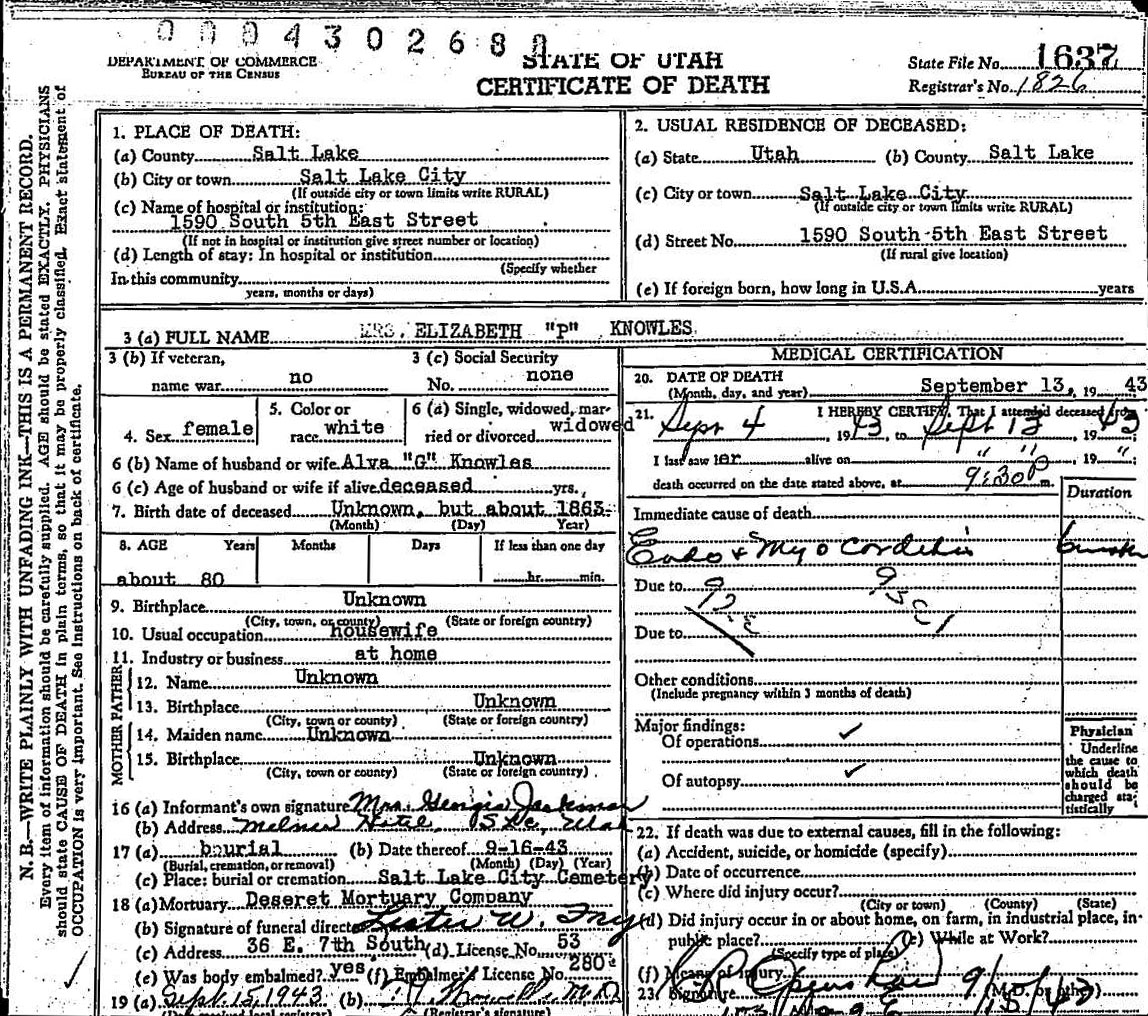 0004302688
DEPARTMENT OF COMMERCE
BUREAU OF THE CENSUS
STATE OF UTAH
CERTIFICATE OF DEATH
State File No. 1637
Registrar's No. 1826
N. B.—WRITE PLAINLY WITH UNFADING INK—THIS IS A PERMANENT RECORD.
Every item of information should be carefully supplied. AGE should be stated EXACTLY. PHYSICIANS
should state CAUSE OF DEATH in plain terms, so that it may be properly classified. Exact statement of
OCCUPATION is very important. See instructions on back of certificate.
1. PLACE OF DEATH:
(a) County Salt Lake
(b) City or town Salt Lake City
(If outside city or town limits write RURAL)
(c) Name of hospital or institution:
1590 South 5th East Street
(If not in hospital or institution give street number or location)
(d) Length of stay: In hospital or institution
(Specify whether
In this community
years, months or days)
2. USUAL RESIDENCE OF DECEASED:
(a) State Utah (b) County Salt Lake
(c) City or town Salt Lake City
(If outside city or town limits write RURAL)
(d) Street No. 1590 South 5th East Street
(If rural give location)
(e) If foreign born, how long in U.S.A. years
3 (a) FULL NAME MRS. ELIZABETH "P" KNOWLES
3 (b) If veteran,
name war no
3 (c) Social Security
No. none
4. Sex female
5. Color or
race white
6 (a) Single, widowed, mar-
ried or divorced widowed
6 (b) Name of husband or wife Alva "G" Knowles
6 (c) Age of husband or wife if alive deceased yrs.
7. Birth date of deceased Unknown, but about 1863
(Month) (Day) Year)
8. AGE Years Months Days If less than one day
about 80 hr. min.
9. Birthplace Unknown
(City, town, or county) (State or foreign country)
10. Usual occupation housewife
11. Industry or business at home
FATHER
12. Name Unknown
13. Birthplace Unknown
(City, town or county) (State or foreign country)
MOTHER
14. Maiden name Unknown
15. Birthplace Unknown
(City, town or county) (State or foreign country)
16 (a) Informant's own signature Mrs. Georgia Jackman
(b) Address Hotel, SLC, Utah
17 (a) bourial (b) Date thereof 9-16-43
(Burial, cremation, or removal) (Month) (Day) (Year)
(c) Place: burial or cremation Salt Lake City Cemetery
18 (a) Mortuary Deseret Mortuary Company
(b) Signature of funeral director Lester W.
(c) Address 36 E. 7th South (d) License No. 53
(e) Was body embalmed? yes (f) Embalmer's License No. 280
19 (a) Sept 15, 1943 (b) M.D.
(Registrar's signature)
MEDICAL CERTIFICATION
20. DATE OF DEATH
(Month, day, and year) September 13, 1943
21. I HEREBY CERTIFY, That I attended deceased from
Sept 4, 1943, to Sept 13 1943
I last saw her alive on " ", 19 "
death occurred on the date stated above, at 9:30 P m.
Duration
Immediate cause of death
Endo & Myocarditis
Due to
Due to
Other conditions
(Include pregnancy within 3 months of death)
Major findings:
Of operations ✓
Of autopsy ✓
Physician
Underline
the cause to
which death
should be
charged sta-
tistically
22. If death was due to external causes, fill in the following:
(a) Accident, suicide, or homicide (specify)
(b) Date of occurrence
(c) Where did injury occur?
(City or town) (County) (State)
(d) Did injury occur in or about home, on farm, in industrial place, in
public place? (e) While at Work?
(Specify type of place)
(f) Means of injury
23. Signature (M.D. or other) 9/15/43